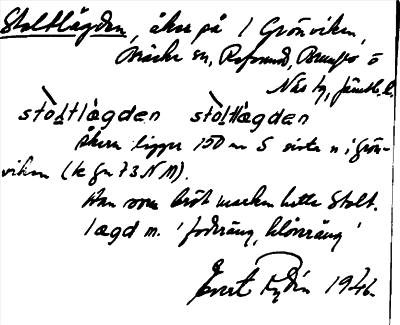 Stoltlägden, åker på 1 Grönviken,
Bräcke sn, Refsund, Brunflo o
Näs tg, Jämtl. l.
stòltlàgden stòltlàgden
Åkern ligger 150 m S sista n i Grön-
viken (se gn 73 NM).
Han som bröt marken hette Stolt.
lægd m. 'foderäng,
Evert Rydén 1946.